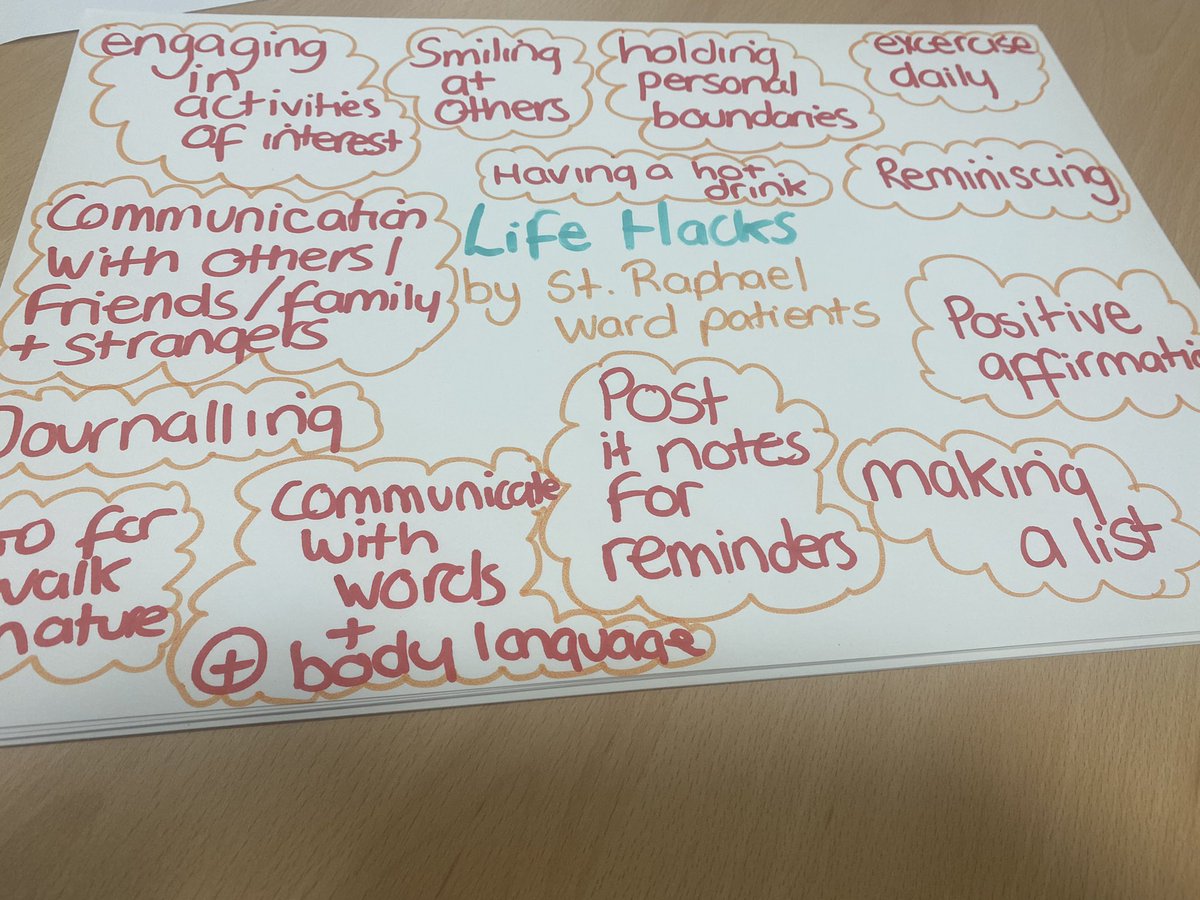 engaging
in
activities
of interest
Smiling
at
others
holding
personal
boundaries
excercise
daily
Having a hot
drink
Reminiscing
Life Hacks
by St. Raphael
ward patients
Communication
with others/
Friends/family
+ strangers
Positive
affirmatio
Journalling
Post
it notes
for
reminders
making
a list
for
walk
nature
communicate
with
words
+
+ body language